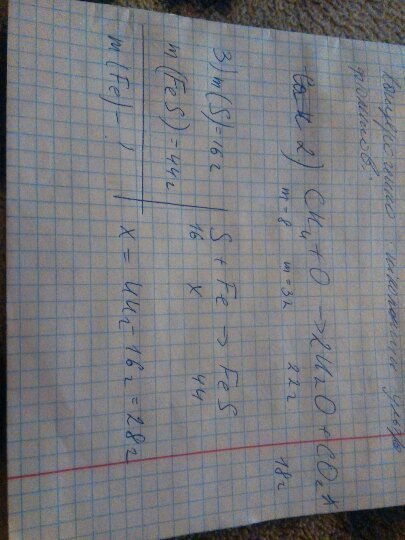 2) CH₄ + O → 2H₂O + CO₂↑
m=8 m=32 22г 18г
3) m(S)=16г
m(FeS)=44г
m(Fe) – ?
S + Fe → FeS
16 x 44
x = 44г – 16г = 28г